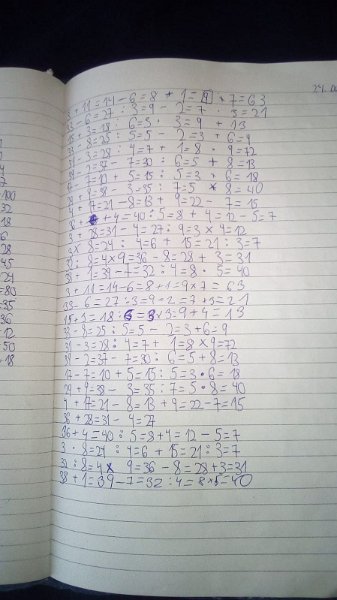 3 + 11 = 14 - 6 = 8 + 1 = 9 * 7 = 63
- 6 = 27 : 3 = 9 - 2 = 7 . 3 = 21
+ 3 = 18 : 6 = 3 . 3 = 9 + 13
- 8 = 25 : 5 = 5 - 2 = 3 + 6 = 9
31 - 3 = 28 : 4 = 7 + 1 = 8 . 9 = 72
39 - 2 = 37 - 7 = 30 : 6 = 5 + 8 = 13
17 - 7 = 10 + 5 = 15 : 5 = 3 * 6 = 18
29 + 9 = 38 - 3 = 35 : 7 = 5 * 8 = 40
4 + 17 = 21 - 8 = 13 + 9 = 22 - 7 = 15
+ 4 = 40 : 5 = 8 + 4 = 12 - 5 = 7
+ 28 = 31 - 4 = 27 : 9 = 3 * 4 = 12
3 * 8 = 24 : 4 = 6 + 15 = 21 : 3 = 7
: 8 = 4 * 9 = 36 - 8 = 28 + 3 = 31
38 + 1 = 39 - 7 = 32 : 4 = 8 . 5 = 40
3 + 11 = 14 - 6 = 8 + 1 = 9 * 7 = 63
33 - 6 = 27 : 3 = 9 - 2 = 7 * 3 = 21
15 + 3 = 18 : 6 = 3 * 3 = 9 + 4 = 13
- 8 = 25 : 5 = 5 - 2 = 3 + 6 = 9
31 - 3 = 28 : 4 = 7 + 1 = 8 * 9 = 72
39 - 2 = 37 - 7 = 30 : 6 = 5 + 8 = 13
17 - 7 = 10 + 5 = 15 : 5 = 3 * 6 = 18
29 + 9 = 38 - 3 = 35 : 7 = 5 * 8 = 40
4 + 17 = 21 - 8 = 13 + 9 = 22 - 7 = 15
+ 28 = 31 - 4 = 27
36 + 4 = 40 : 5 = 8 + 4 = 12 - 5 = 7
3 . 8 = 24 : 4 = 6 + 15 = 21 : 3 = 7
32 : 8 = 4 * 9 = 36 - 8 = 28 + 3 = 31
38 + 1 = 39 - 7 = 32 : 4 = 8 * 5 = 40